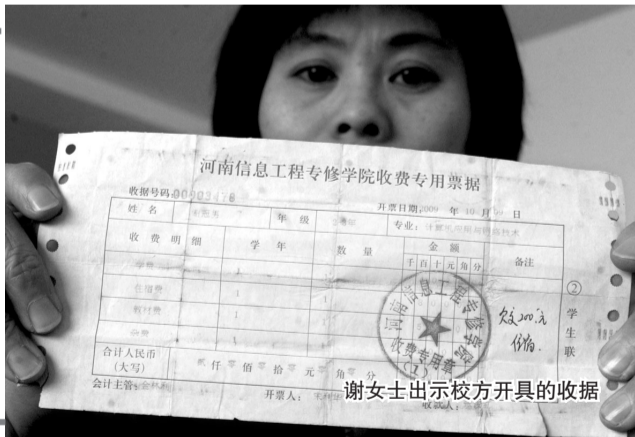 河南信息工程专修学院收费专用票据
收据号码:
开票日期:2009 年 10 月 09 日
姓 名
年 级
专业:
收 费 明 细
学 年
数 量
金 额
千 百 十 元 角 分
备注
学费 1
住宿费 1 1
教材费 1 1
杂费 1 1
欠交200元
合计人民币
(大写)
贰 仟 零 佰 零 拾 零 元 零 角 零 分
会计主管:
开票人:
收款人:
② 学生联
河南信息工程专修学院
收费专用章
(1)
谢女士出示校方开具的收据